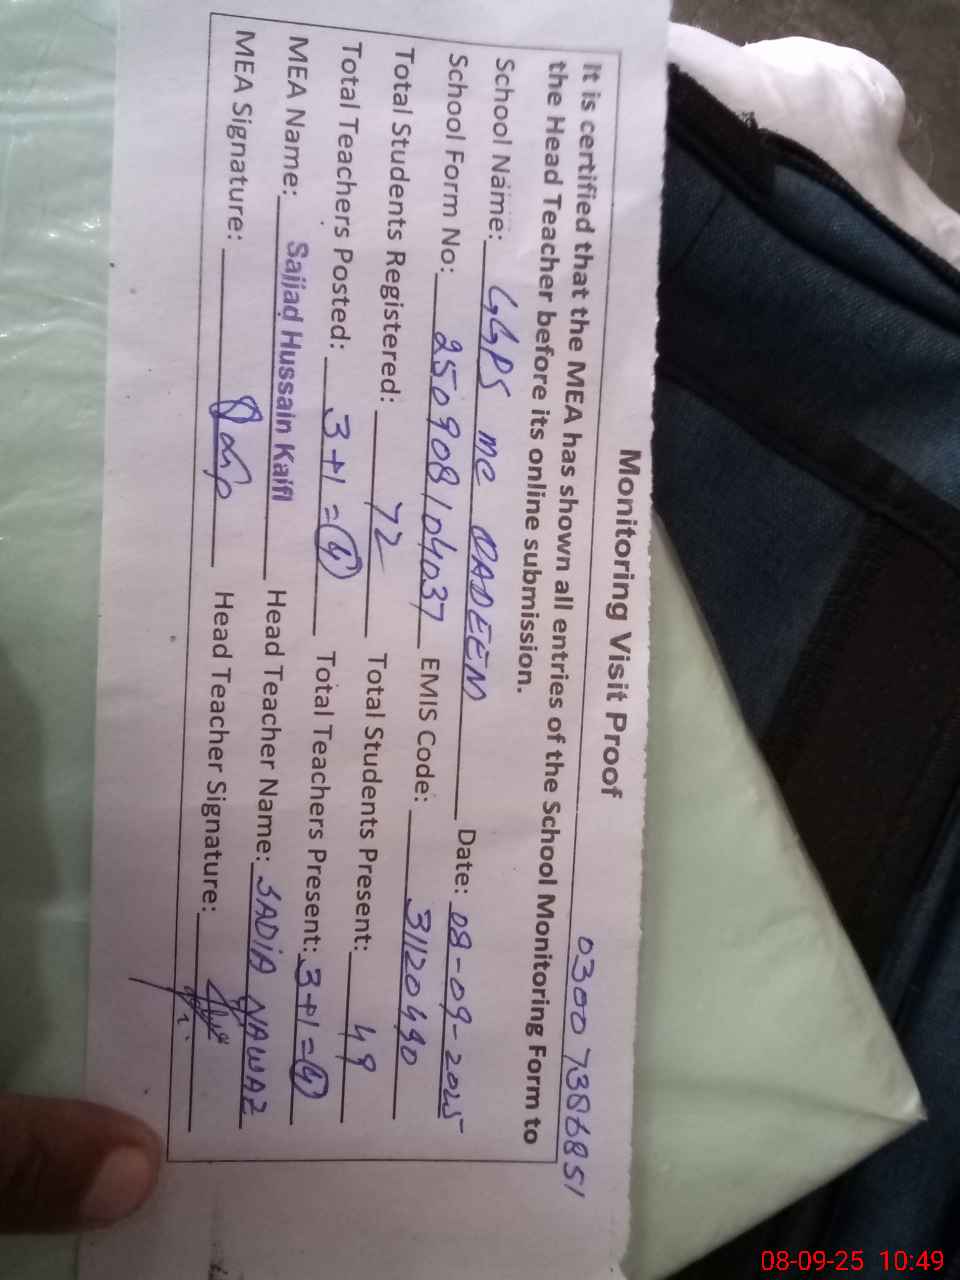 Monitoring Visit Proof
0300 7386851
It is certified that the MEA has shown all entries of the School Monitoring Form to
the Head Teacher before its online submission.
School Name: GGPS MC QADEEM Date: 08-09-2025
School Form No: 250908104037 EMIS Code: 31120490
Total Students Registered: 72 Total Students Present: 49
Total Teachers Posted: 3+1=(4) Total Teachers Present: 3+1=(4)
MEA Name: Sajjad Hussain Kaifi Head Teacher Name: SADIA NAWAZ
MEA Signature: Head Teacher Signature:
08-09-25 10:49